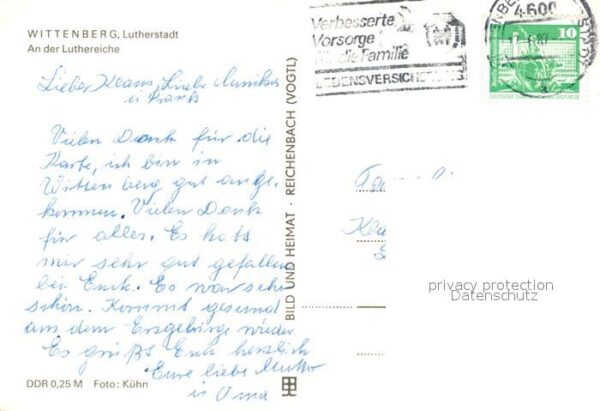 WITTENBERG, Lutherstadt
An der Luthereiche
Lieber Klaus, liebe Monika
u Frank
Vielen Dank für die
Karte, ich bin in
Wittenberg gut ange-
kommen. Vielen Dank
für alles. Es hats
mir sehr gut gefallen
bei Euch. Es war sehr
schön. Kommt gesund
aus dem Erzgebirge wieder
Es grüßt Euch herzlich
Eure liebe Mutter
u Oma
DDR 0,25 M Foto: Kühn
BILD UND HEIMAT · REICHENBACH (VOGTL)
Verbesserte
Vorsorge
für die Familie
LEBENSVERSICHERUNG
4600
10
Fam
Kla
privacy protection
Datenschutz